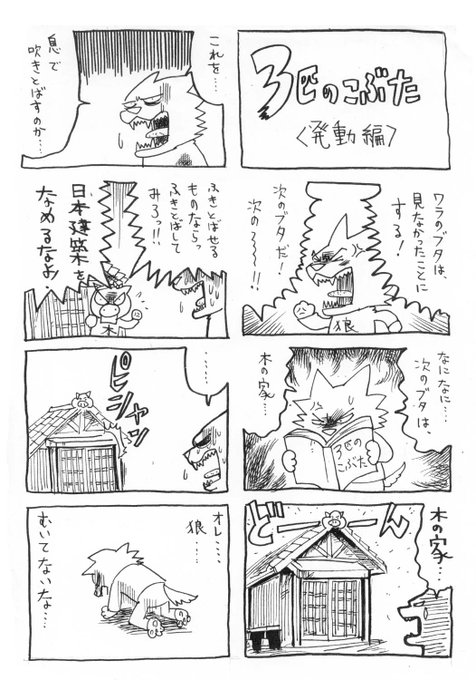 3匹のこぶた
<発動編>
ワラのブタは、
見なかったことに
する!
次のブタだ!
次のろ〜〜!!
狼
なになに…
次のブタは、
木の家…
3匹の
こぶた
木の家…
どーーん
これを…
息で
吹きとばすのか…
ふきとばせる
ものならっ
ふきとばして
みろっ!!
日本建築を
なめるなよ!
木
……
ピシャン
オレ…
狼……
むいてないな…